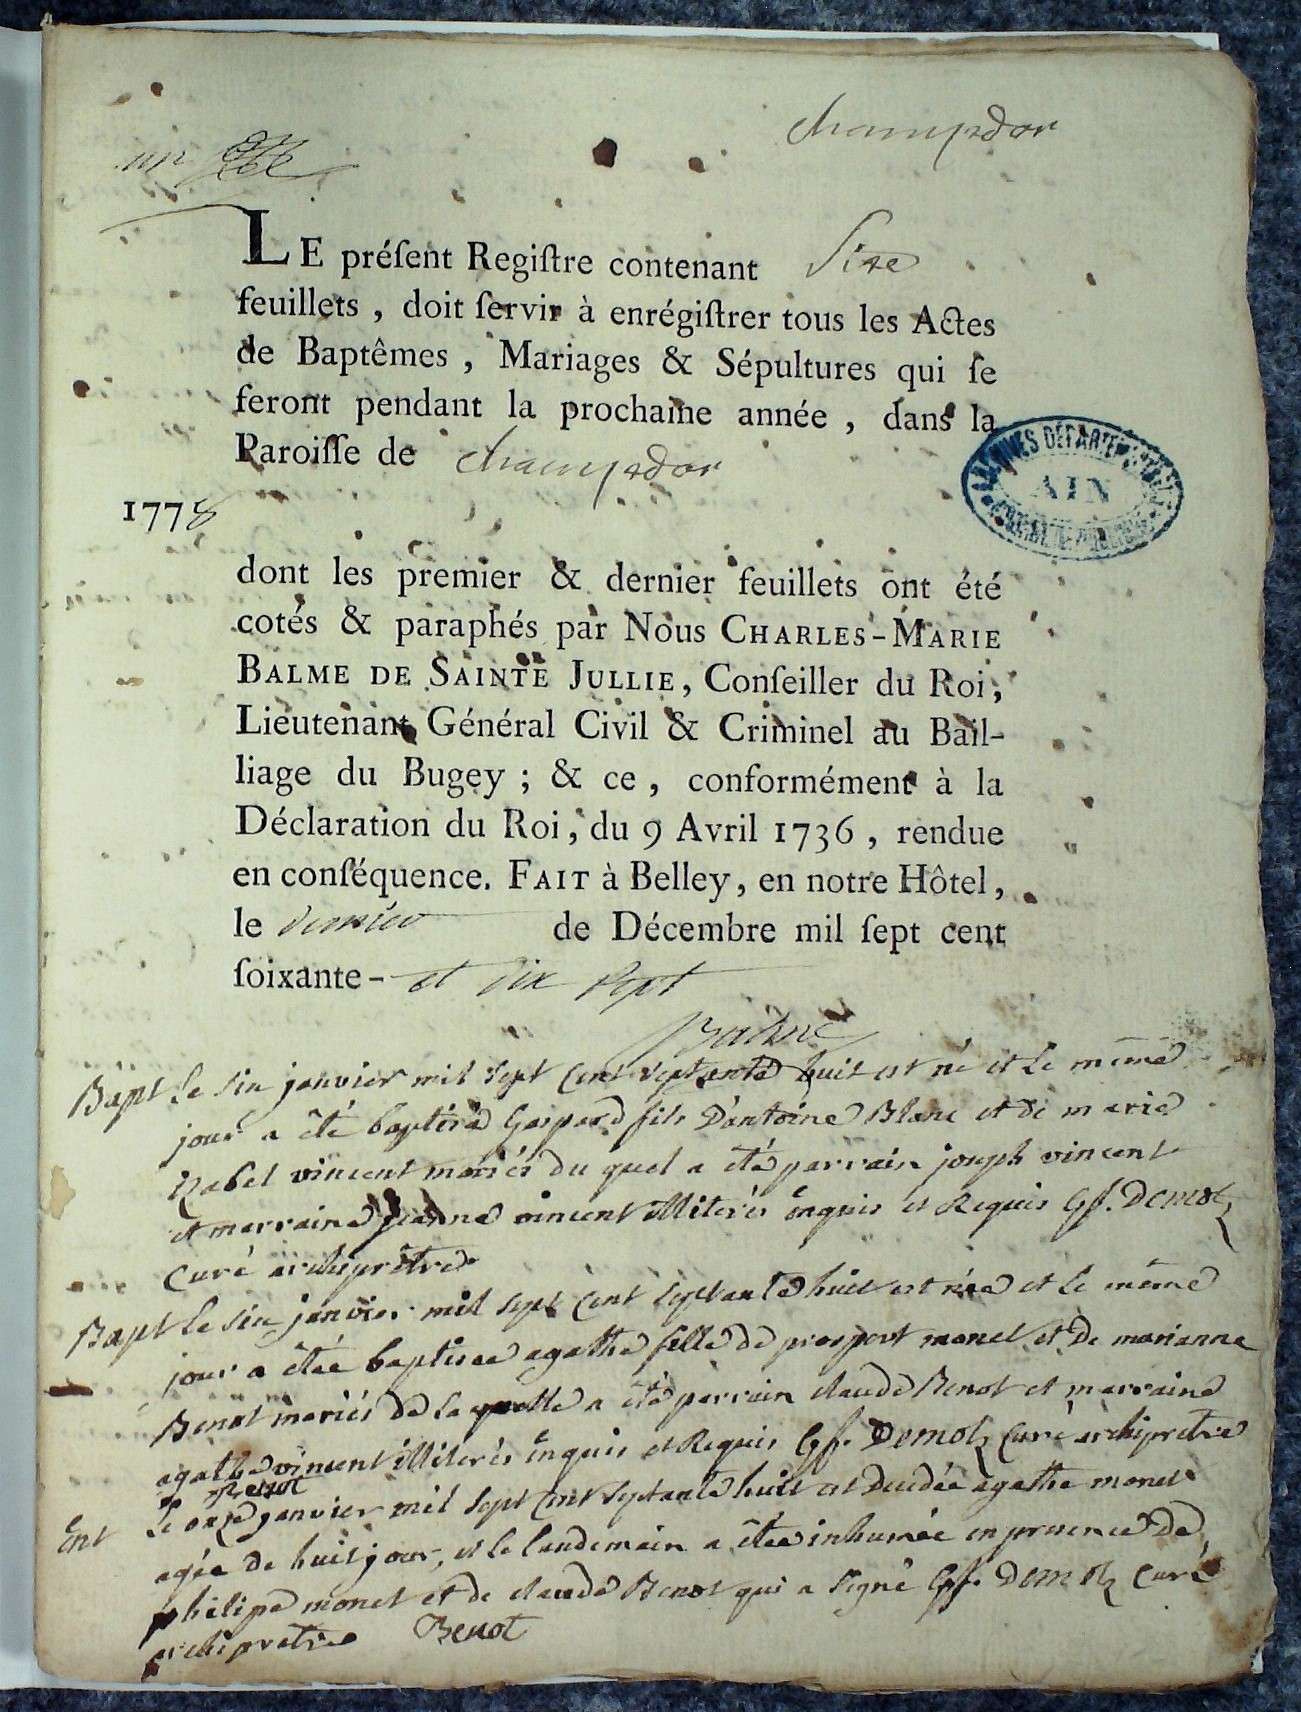 champdor
un
LE préſent Regiſtre contenant Size
feuillets , doit ſervir à enrégiſtrer tous les Actes
de Baptêmes , Mariages & Sépultures qui ſe
feront pendant la prochaine année , dans la
Paroiſſe de champdor
ARCHIVES DÉPARTEMENTALES
AIN
1778
dont les premier & dernier feuillets ont été
cotés & paraphés par Nous CHARLES-MARIE
BALME DE SAINTE JULLIE, Conſeiller du Roi,
Lieutenant Général Civil & Criminel au Bail-
liage du Bugey ; & ce , conformément à la
Déclaration du Roi, du 9 Avril 1736 , rendue
en conſéquence. FAIT à Belley, en notre Hôtel,
le dernier de Décembre mil ſept cent
ſoixante- et dix sept
Balme
Bapt le six janvier mil sept cent septante huit est né et le même
jour a été baptisé Gaspard fils D'antoine Blanc et de marie
Izabel vincent mariés du quel a été parrain joseph vincent
et marraine jeanne vincent illiterés enquis et Requis Demotz
Curé archiprêtre
Bapt le six janvier mil sept cent septante huit est née et le même
jour a étée baptisée agathe fille de prospert monet et De marianne
Benot mariés de laquelle a été parrain claude Benot et marraine
agathe vincent illiterés enquis et Requis Demotz Curé archiprêtre
Benot
Ent Le onze janvier mil sept cent septante huit est decedée agathe monet
agée de huit jour, et le landemain a étée inhumée en presence de
philipe monet et de claude Benot qui a signé Demotz Curé
archiprêtre Benot